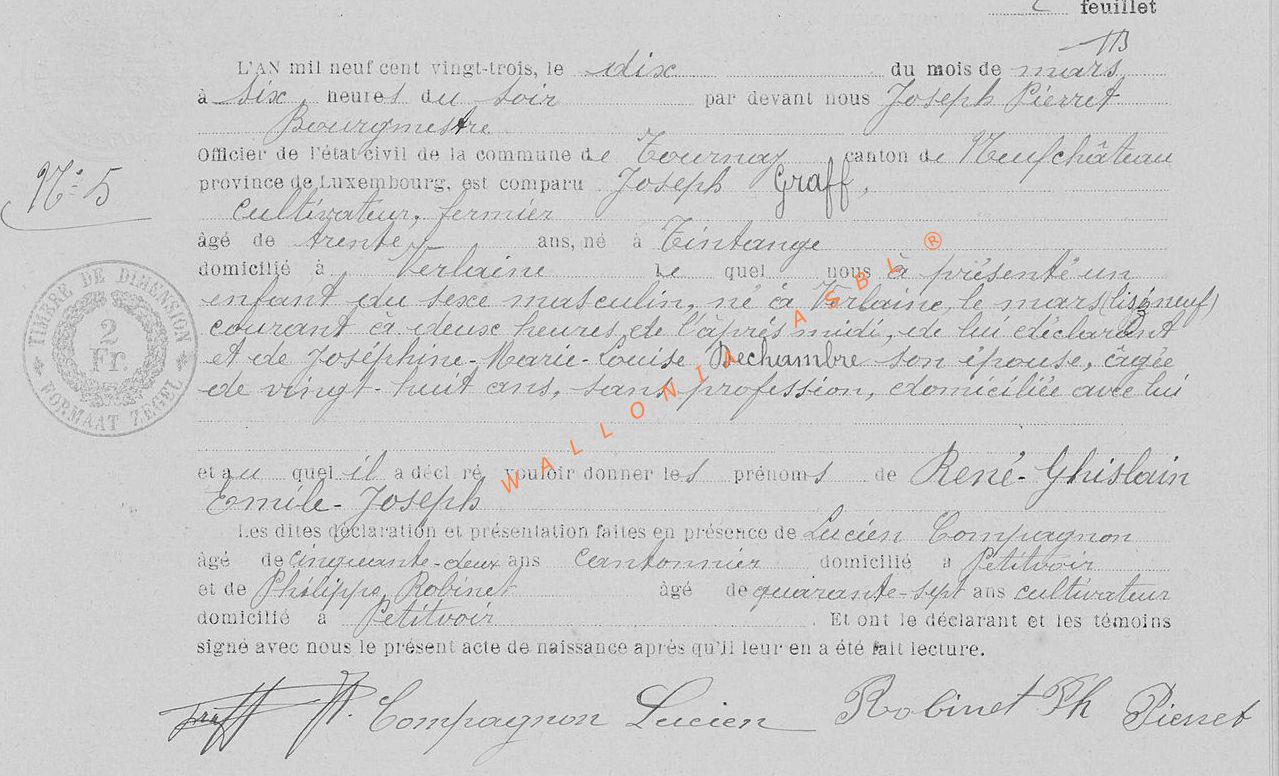 feuillet
L'AN mil neuf cent vingt-trois, le dix du mois de mars
à six heures du soir par devant nous Joseph Pierret
Bourgmestre
Officier de l'état civil de la commune de Tournay canton de Neufchâteau
province de Luxembourg, est comparu Joseph Graff,
N° 5
cultivateur, fermier
âgé de trente ans, né à Tintange
domicilié à Verlaine le quel nous à présenté un
enfant du sexe masculin, né à Verlaine, le mars (lisez neuf)
courant à deux heures de l'après midi, de lui déclarant
et de Joséphine-Marie-Louise Dechambre son épouse, âgée
de vingt-huit ans, sans profession, domiciliée avec lui
et au quel il a décl ré vouloir donner les prénoms de René-Ghislain
Emile-Joseph
Les dites déclaration et présentation faites en présence de Lucien Compagnon
âgé de cinquante-deux ans cantonnier domicilié a Petitvoir
et de Philippe Robinet âgé de quarante-sept ans cultivateur
domicilié à Petitvoir. Et ont le déclarant et les témoins
signé avec nous le présent acte de naissance après qu'il leur en a été fait lecture.
Graff Compagnon Lucien Robinet Ph Pierret
TIMBRE DE DIMENSION
2
Fr.
FORMAAT ZEGEL
WALLONIA ASBL ®